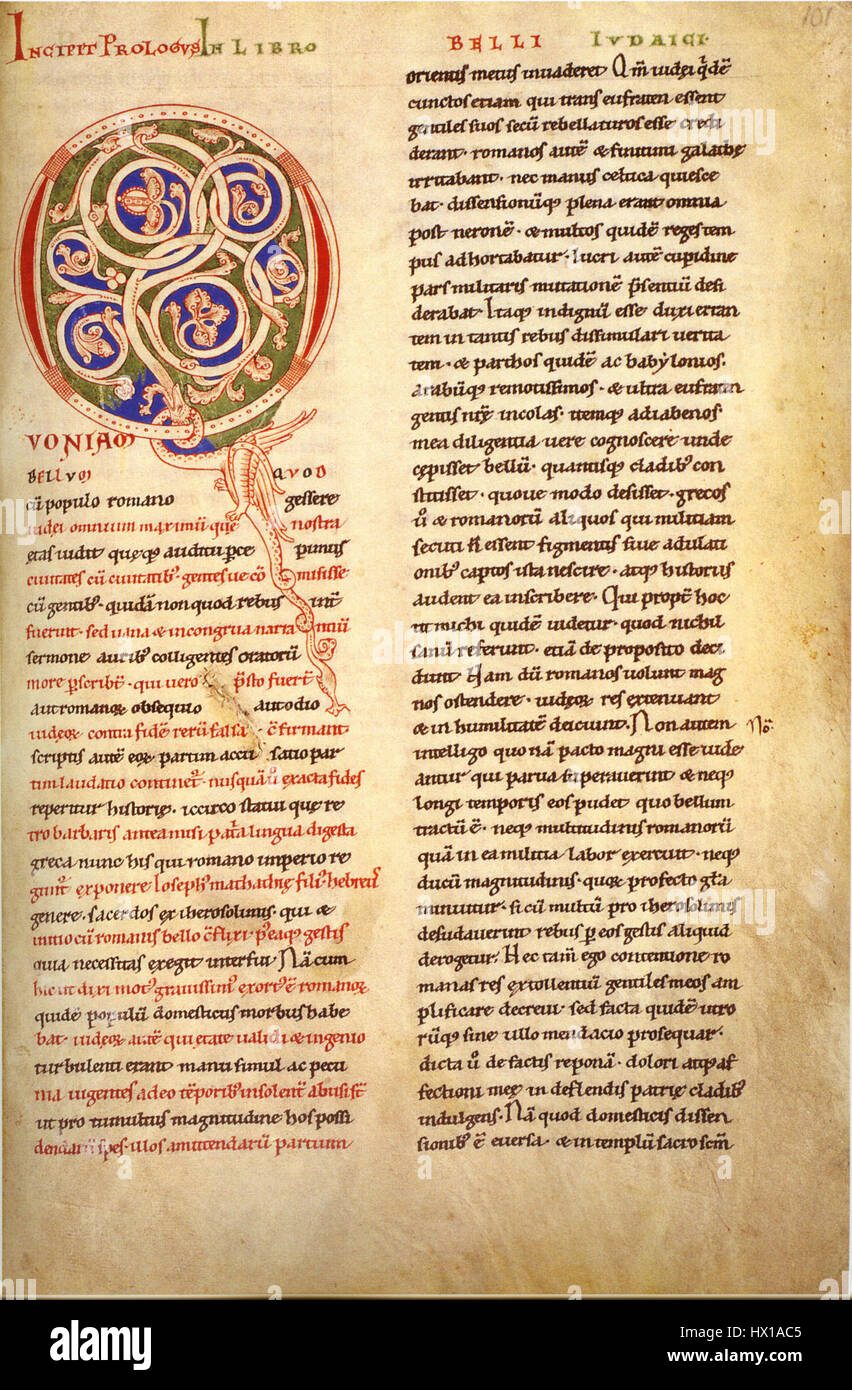 INCIPIT PROLOGVS IN LIBRO BELLI IVDAICI·
101
QVONIAM
BELLVM QVOD
cū populo romano gessere
iudei omnium maximū quę nostra
ętas uidit quęq; auditu ꝑce pimus
ciuitates cū ciuitatib; gentes ue cō misisse
cū gentib;· quidā non quod rebus int̄
fuerint· sed uana & incongrua narra ntiū
sermone aurib; colligentes oratorū
more ꝑscribt̄· qui uero p̄sto fuer̄t
aut romanoꝝ obsequio aut odio
iudeoꝝ contra fidē rerū falsa c̄firmant
scriptis autē eoꝝ partim accu satio par
tim laudatio continet᷑· nusquā ů exacta fides
reperitur historię· iccirco statui quę re
tro barbaris antea misi pat̄a lingua digesta
greca nunc his qui romano imperio re
gunt᷑ exponere Ioseph᷒ mathathię fili᷒ hebreus
genere· sacerdos ex iherosolimis· qui &
initio cū romanis bello c̄flixi p᷒eaq; gestis
quia necessitas exegit interfui· Nā cum
hic ut dixi mot᷒ grauissim᷒ exort᷒ ē romanoꝝ
quidē populū domesticus morbus habe
bat· iudeoꝝ autē qui ętate ualidi & ingenio
turbulenti erant manu simul ac pecu
nia uigentes adeo tēporib; insolent᷑ abusi st̄
ut pro tumultus magnitudine hos possi
dendarū spes· illos amittendarū partium
orientis metus inuaderet Qm̄ iudęi q̇dē
cunctos etiam qui trans eufraten essent
gentiles suos secū rebellaturos esse credi
derant· romanos autē & finitimi galathę
irritabant· nec manus celtica quiesce
bat· dissensionūq; plena erant omnia
post neronē· & multos quidē reges tem
pus adhortabatur· lucri autē cupidine
pars militaris mutationē p̄sentiū desi
derabat Itaq; indignū esse duxi erran
tem in tantis rebus dissimulari uerita
tem· & parthos quidē ac babylonios·
arabūq; remotissimos· & ultra eufraten
gentis nr̄ę incolas· itemq; adiabenos
mea diligentia uere cognoscere unde
cępisset bellū· quantisq; cladib; con
stitisset· quoue modo desisset· grecos
ů & romanorū aliquos qui militiam
secuti n̄ essent figmentis siue adulati
onib; captos ista nescire· atq; historias
audent ea inscribere· Qui propt᷑ hoc
ut michi quidē uidetur· quod nichil
sanū referunt· etiā de proposito deci
dunt Nam dū romanos uolunt mag
nos ostendere· iudeoꝝ res extenuant
& in humilitatē deiciunt· Non autem
No·
intelligo quo nā pacto magni esse uide
antur qui parua superauerint & neq;
longi temporis eos pudet quo bellum
tractū ē· neq; multitudinis romanorū
quā in ea militia labor exercuit· neq;
ducū magnitudinis· quoꝝ profecto gl̄a
minuitur· si cū multū pro iherosolimis
desudauerint rebus ꝑ eos gestis aliquid
derogetur· Hec tam̄ ego contentione ro
manas res extollentiū gentiles meos am
plificare decreui· sed facta quidē utro
rūq; sine ullo mendacio prosequar·
dicta ů de factis reponā· dolori atq; af
fectioni meę in deflendis patrię cladib;
indulgens· Nā quod domesticis dissen
sionib; ē euersa· & in templū sacro scm̄
alamy stock photo
alamy
HX1AC5
www.alamy.com